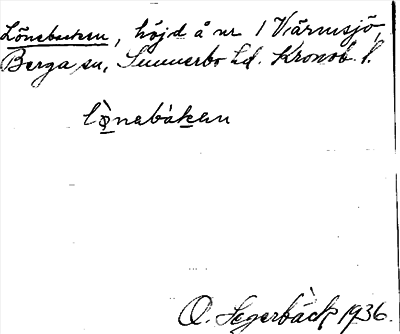 Lönebacken, höjd å nr 1 Värmsjö,
Berga sn, Sunnerbo hd. Kronob. l.
lò̲nebàk̲en
O. Segerbäck 1936.